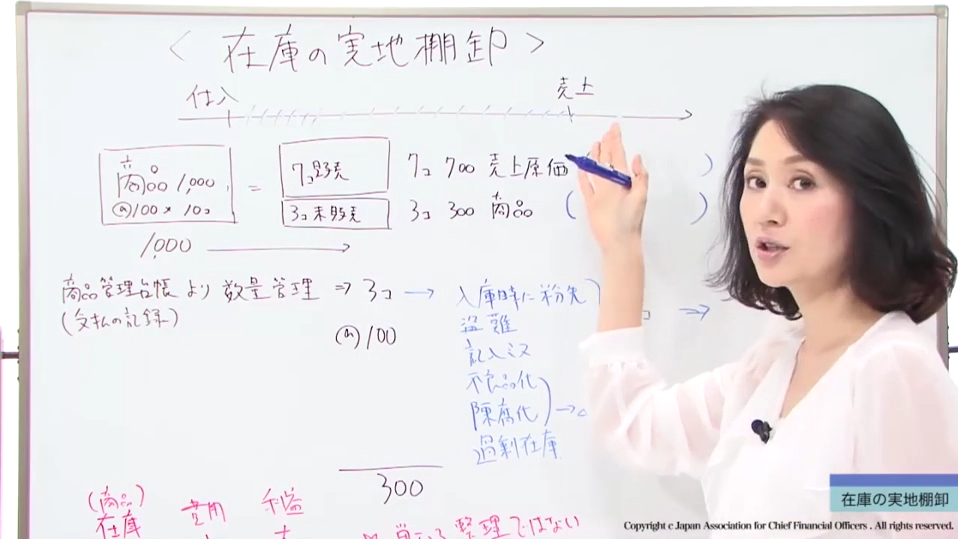 ＜ 在庫の実地棚卸 ＞
仕入
売上
商品 1,000
@100 × 10コ
=
7コ販売
3コ未販売
7コ 700 売上原価 ( )
3コ 300 商品 ( )
1,000
商品管理台帳 より 数量管理 ⇒ 3コ → 入庫時に紛失
(受払の記録)
盗難
@100
記入ミス
不良品化
陳腐化
過剰在庫
コ ⇒
300
(商品)
在庫 費用 利益
整理ではない
在庫の実地棚卸
Copyright c Japan Association for Chief Financial Officers . All rights reserved.